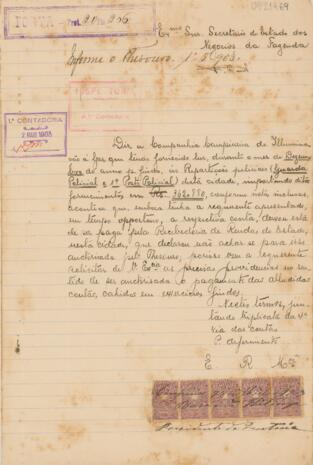 Prot. 20
Exmo Snr. Secretario de Estado dos
Negocios da Fazenda
Informe o Thesouro. 1º 5 903
1ª CONTADORIA
Diz a Companhia Campineira de Illumina
a gaz que tendo fornecido luz, durante o mez de Dezem
bro do anno p. findo, ás Repartições policiaes (Guarda
Policial e 1º Posto Policial) desta cidade, importando ditos
fornecimentos em 362.880, conforme nota inclusa,
acontece que, embora tenha a requerente apresentado,
em tempo opportuno, a respectiva conta, deixou esta
de ser paga pela Recebedoria de Rendas do Estado,
nesta cidade, que declarou não achar-se para isso
auctorisada pelo Thesouro, por isso vem a requerente
solicitar de V. Exª as precisas providencias no sen
tido de ser auctorisado o pagamento das alludidas
contas, cahidas em exercicios findos.
Nestes termos, jun
tando triplicata da 4ª
via das contas
P. deferimento
E R Mcê